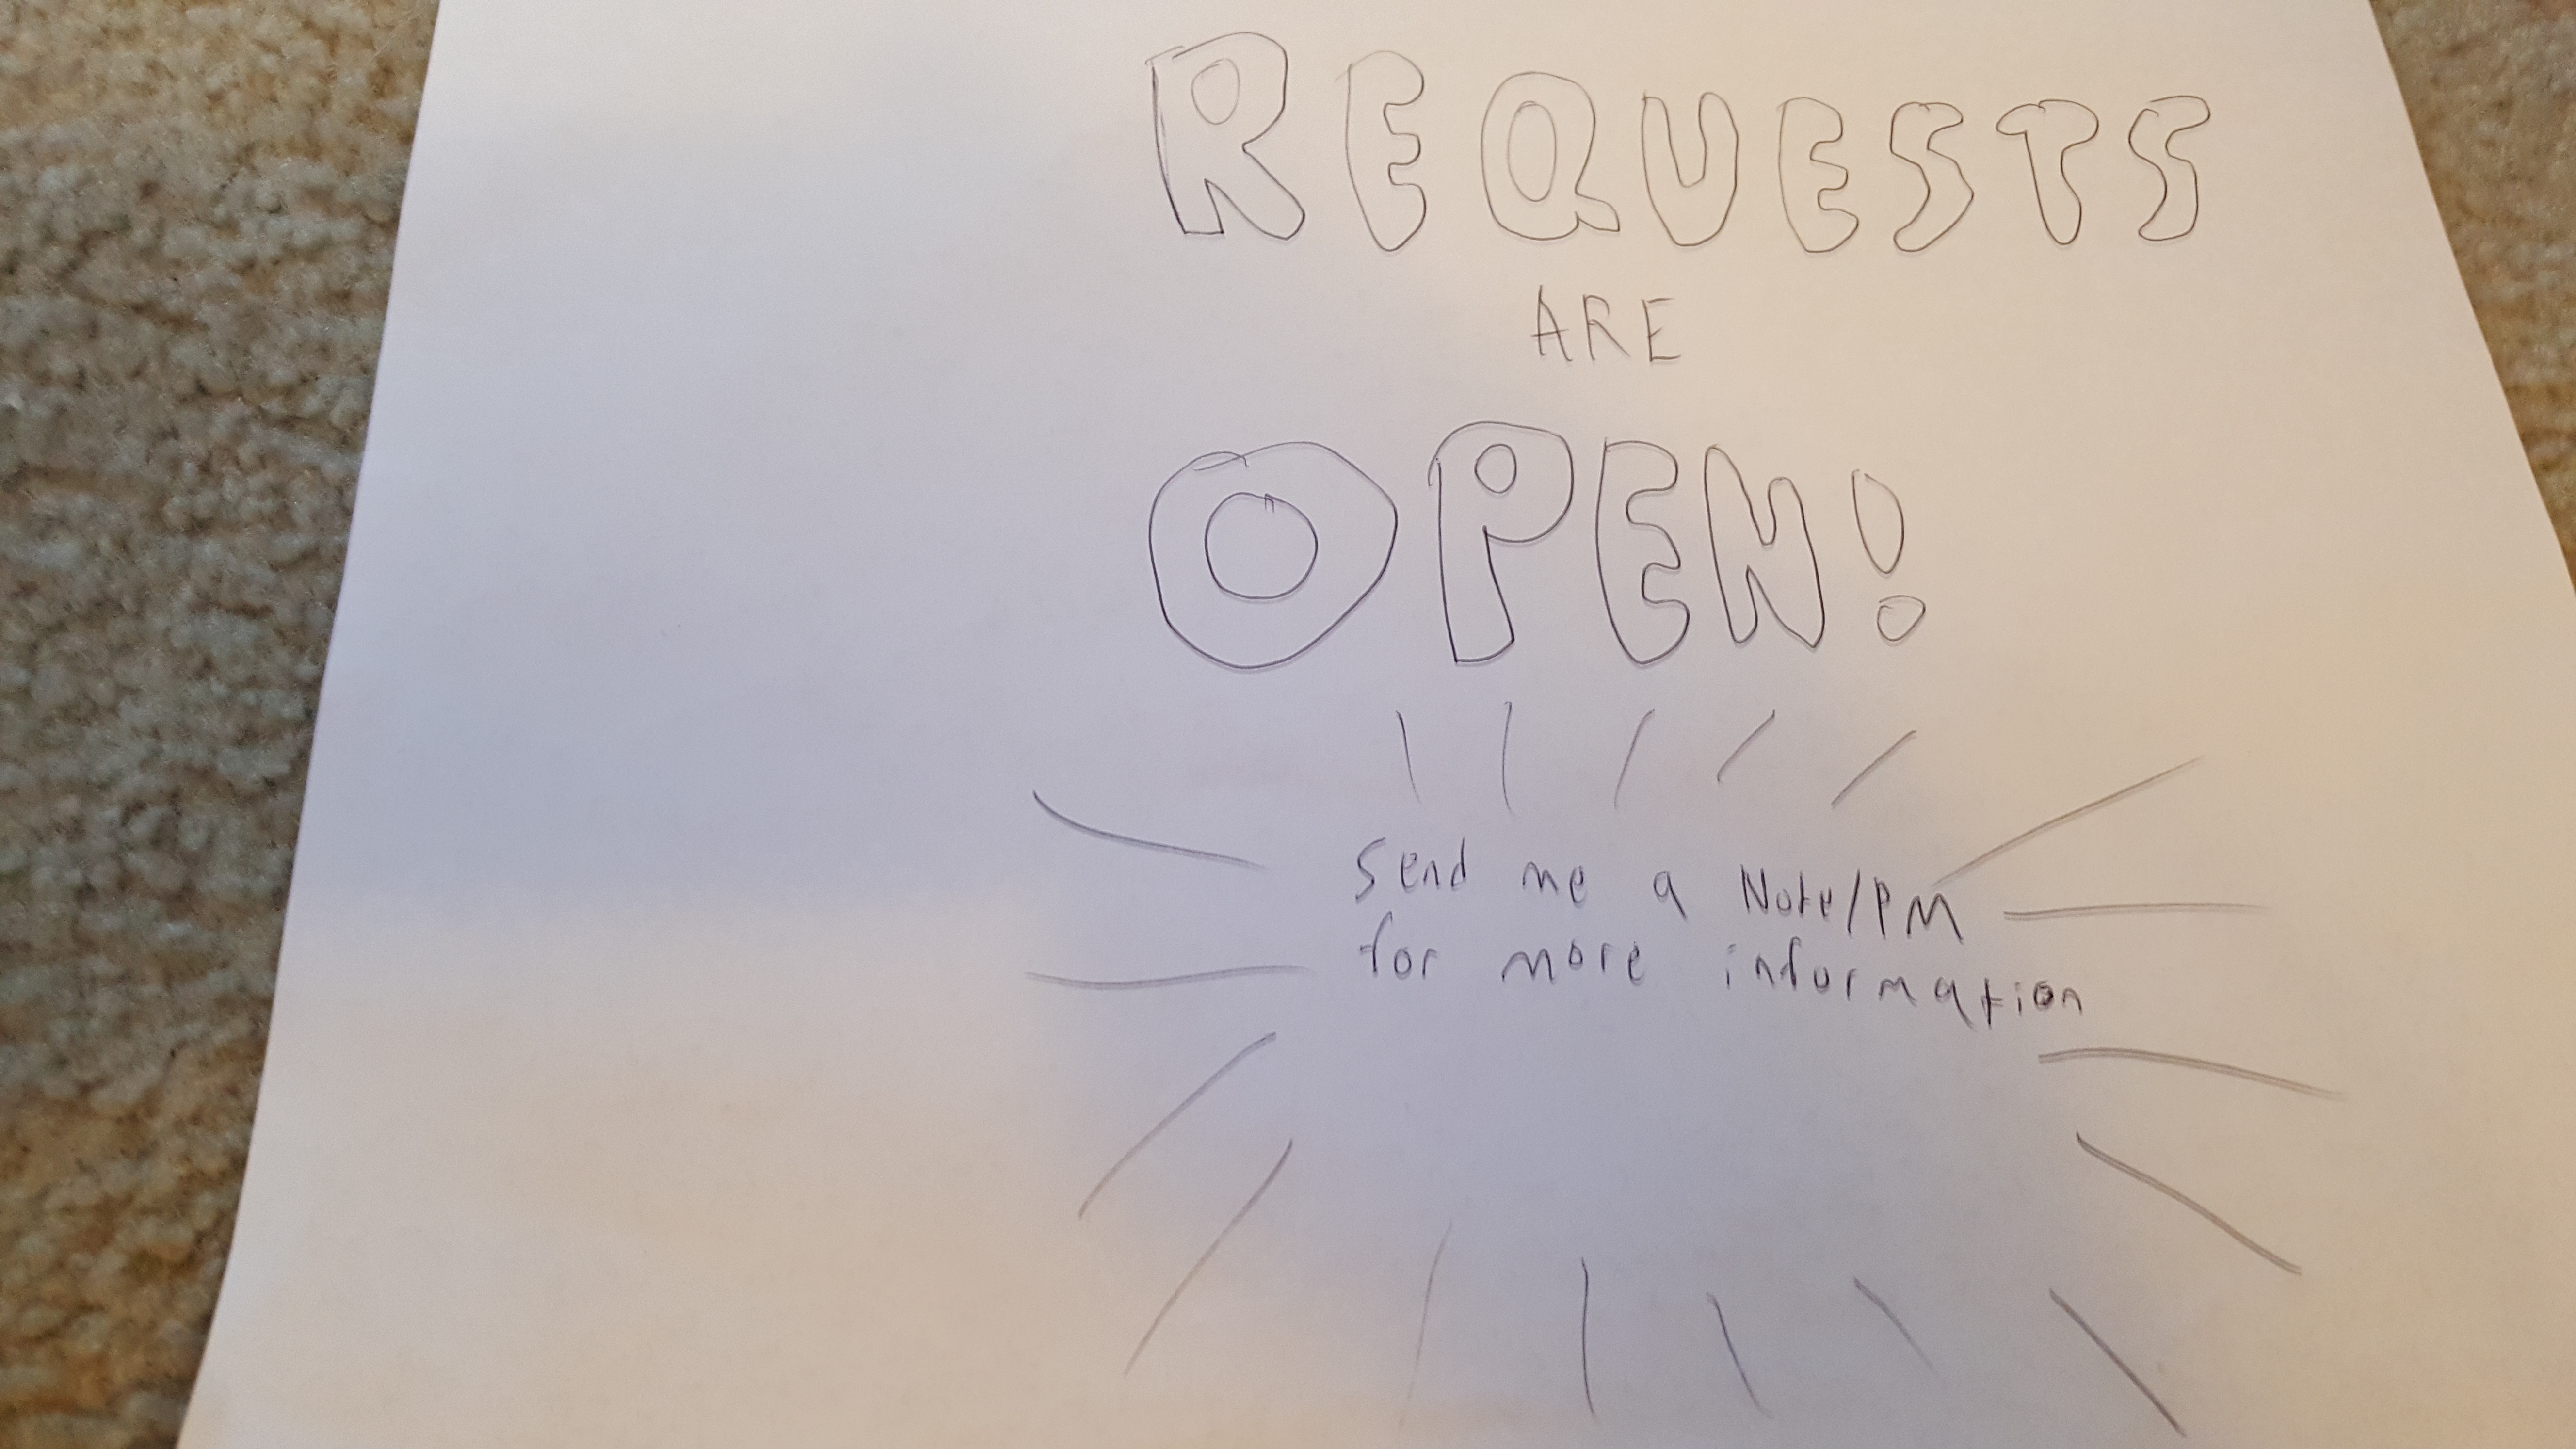 REQUESTS
ARE
OPEN!
Send me a Note/PM
for more information